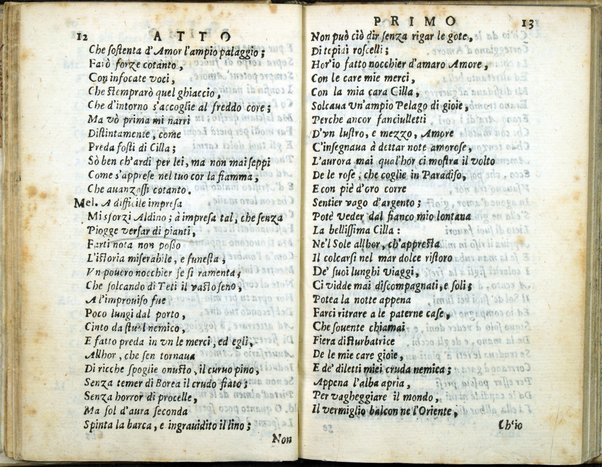 12 ATTO
Che sostenta d'Amor l'ampio palaggio;
Farò forze cotanto,
Con infocate voci,
Che stemprarò quel ghiaccio,
Che d'intorno s'accoglie al freddo core;
Ma vò prima mi narri
Distintamente, come
Preda fosti di Cilla;
Sò ben ch'ardi per lei, ma non mai seppi
Come s'apprese nel tuo cor la fiamma,
Che auanzossi cotanto.
Mel. A difficile impresa
Mi sforzi Aldino; à impresa tal, che senza
Piogge versar di pianti,
Farti nota non posso
L'istoria miserabile, e funesta;
Vn pouero nocchier se si ramenta;
Che solcando di Teti il vasto seno,
A l'improuiso fue
Poco lungi dal porto,
Cinto da stuol nemico,
E fatto preda in vn le merci, ed egli,
Allhor, che sen tornaua
Di ricche spoglie onusto, il curuo pino,
Senza temer di Borea il crudo fiato;
Senza horror di procelle,
Ma sol d'aura seconda
Spinta la barca, e ingrauidito il lino;
Non
PRIMO 13
Non può ciò dir senza rigar le gote,
Di tepidi roscelli;
Hor io fatto nocchier d'amaro Amore,
Con le care mie merci,
Con la mia cara Cilla,
Solcaua vn'ampio Pelago di gioie,
Perche ancor fanciulletti
D'vn lustro, e mezzo, Amore
C'insegnaua à dettar note amorose,
L'aurora mai qual'hor ci mostra il volto
De le rose, che coglie in Paradiso,
E con piè d'oro corre
Sentier vago d'argento;
Potè veder dal fianco mio lontana
La bellissima Cilla:
Ne'l Sole allhor, ch'appresta
Il colcarsi nel mar dolce ristoro
De' suoi lunghi viaggi,
Ci vidde mai discompagnati, e soli;
Potea la notte appena
Farci ritrare a le paterne case,
Che souente chiamai
Fiera disturbatrice
De le mie care gioie,
E de' diletti miei cruda nemica;
Appena l'alba apria,
Per vagheggiare il mondo,
Il vermiglio balcon ne l'Oriente,
Ch'io